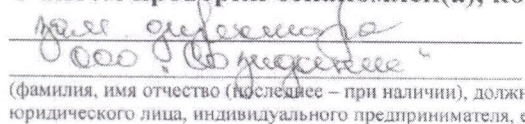 проверки ознакомлен(а), ко
зам. директора
ООО "Созидание"
(фамилия, имя отчество (последнее – при наличии), должн
юридического лица, индивидуального предпринимателя, е